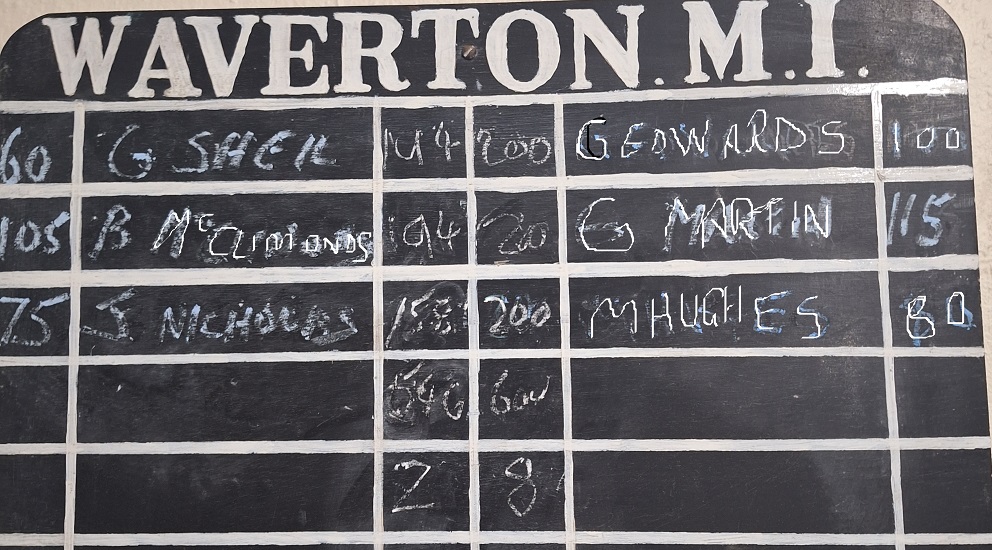 WAVERTON. M.I.
60 G SHEK 200 G EDWARDS 100
105 B McCLIMONDS 194 200 G MARTIN 115
75 J NICHOLAS 158 200 M HUGHES 80
546 600
2 8